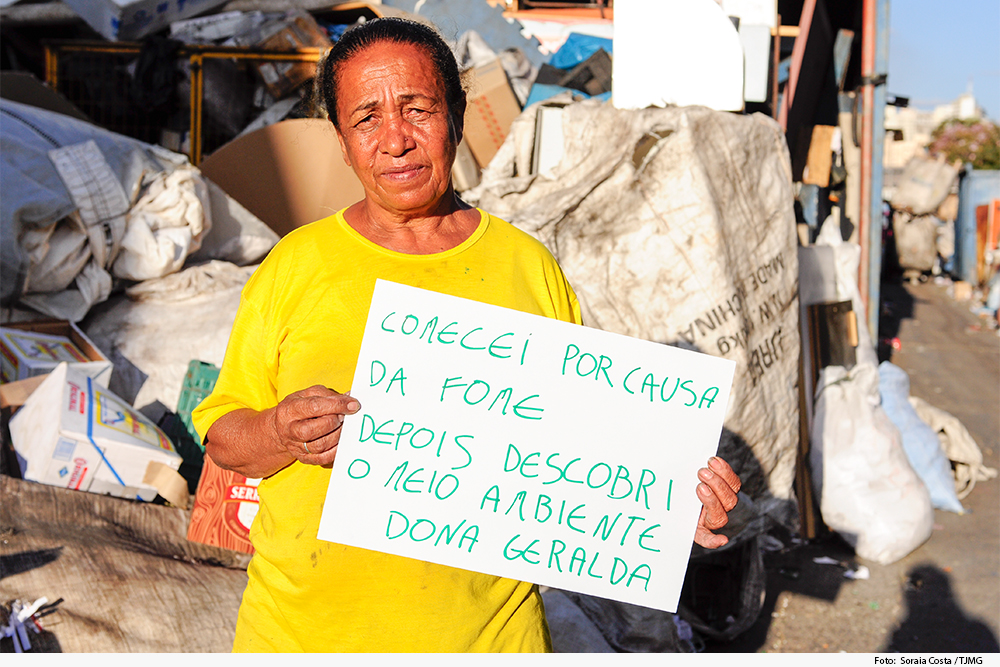 COMECEI POR CAUSA
DA FOME
DEPOIS DESCOBRI
O MEIO AMBIENTE
DONA GERALDA
MADE
CHINA
SERR
Foto: Soraia Costa /TJMG